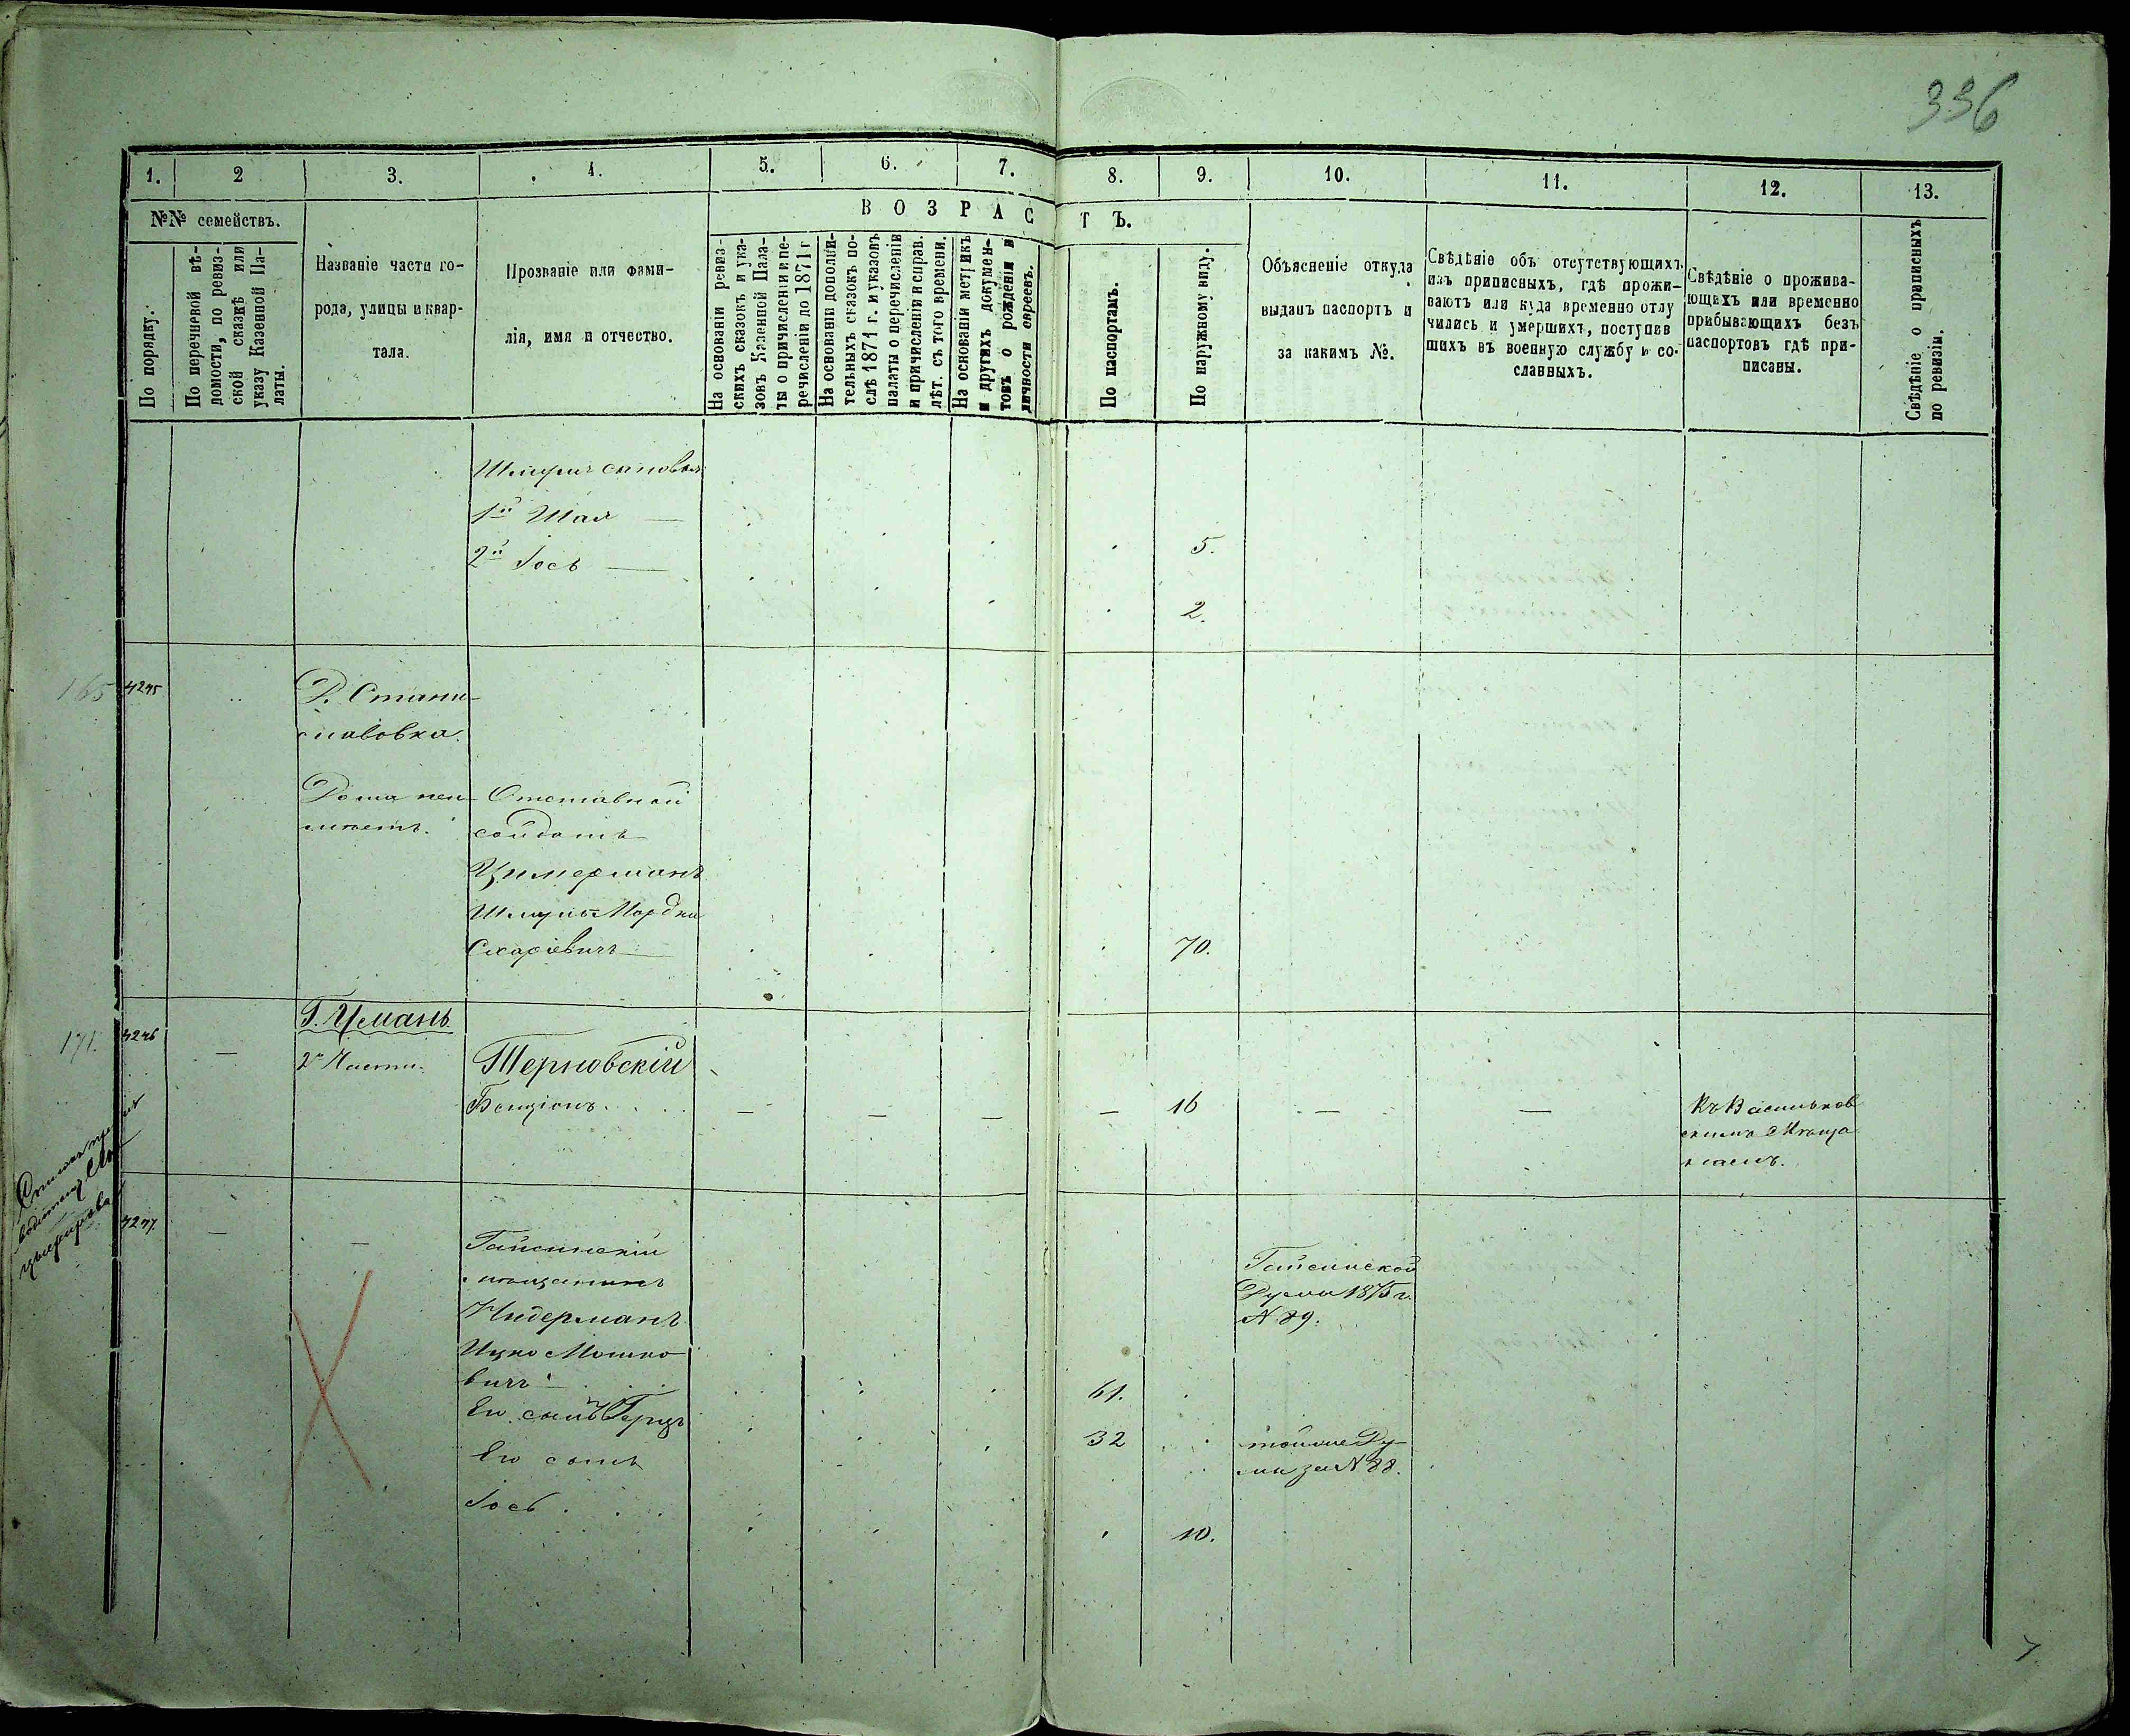 336
1.
2
3.
4.
5.
6.
7.
8.
9.
10.
11.
12.
13.
№№ семействъ.
В О З Р А С Т Ъ.
По порядку.
По перечневой вѣ-
домости, по ревиз-
ской сказкѣ или
указу Казенной Па-
латы.
Названіе части го-
рода, улицы и квар-
тала.
Прозваніе или фами-
лія, имя и отчество.
На основаніи ревиз-
скихъ сказокъ и ука-
зовъ Казенной Пала-
ты о причисленіи и пе-
речисленіи до 1871 г
На основаніи дополни-
тельныхъ сказокъ по-
слѣ 1871 г. и указовъ
палаты о перечисленіи
и причисленіи и справ.
лѣт. съ того времени.
На основаніи метрикъ
и другихъ докумен-
товъ о рожденіи и
личности евреевъ.
По паспортамъ.
По наружному виду.
Объясненіе откуда
выданъ паспортъ и
за какимъ №.
Свѣдѣніе объ отсутствующихъ
изъ приписныхъ, гдѣ прожи-
ваютъ или куда временно отлу
чились и умершихъ, поступив
шихъ въ военную службу и со-
сланныхъ.
Свѣдѣніе о прожива-
ющихъ или временно
прибывающихъ безъ
паспортовъ гдѣ при-
писаны.
Свѣдѣніе о приписныхъ
по ревизіи.
сыновья
1й Шая
2й Іось
5.
2.
165
4245
Д. Стани-
славовка.
Дома неи-
мѣетъ.
Отставной
солдатъ
Цимерманъ
Шмуль Мордко
70.
171.
4246
Г. Умань
2й Части.
Терновскій
Бенціонъ
16
Къ Васильков
скимъ Мѣща
намъ.
4247
Гайсинскій
мѣщанинъ
Нидерманъ
Ицко Мошко
вичъ
61.
Гайсинской
Думы 1875 г.
№ 89.
Его сынъ Герцъ
32
той же Ду-
мы за № 88.
Его сынъ
Іось
10.